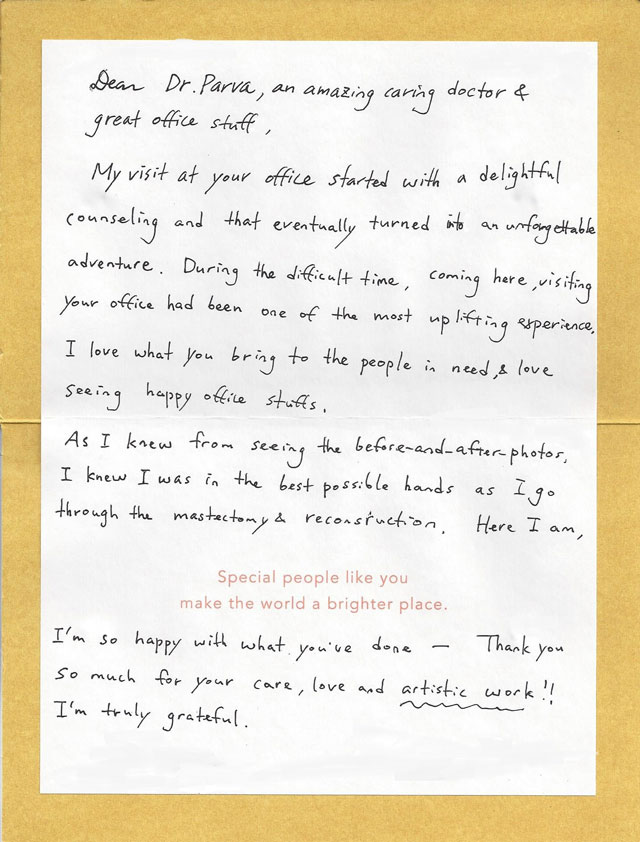 Dear Dr. Parva, an amazing caring doctor &
great office stuff,
My visit at your office started with a delightful
counseling and that eventually turned into an unforgettable
adventure. During the difficult time, coming here, visiting
your office had been one of the most uplifting experience.
I love what you bring to the people in need, & love
seeing happy office stuffs.
As I knew from seeing the before-and-after-photos,
I knew I was in the best possible hands as I go
through the mastectomy & reconstruction. Here I am,
Special people like you
make the world a brighter place.
I'm so happy with what you've done — Thank you
so much for your care, love and artistic work!!
I'm truly grateful.